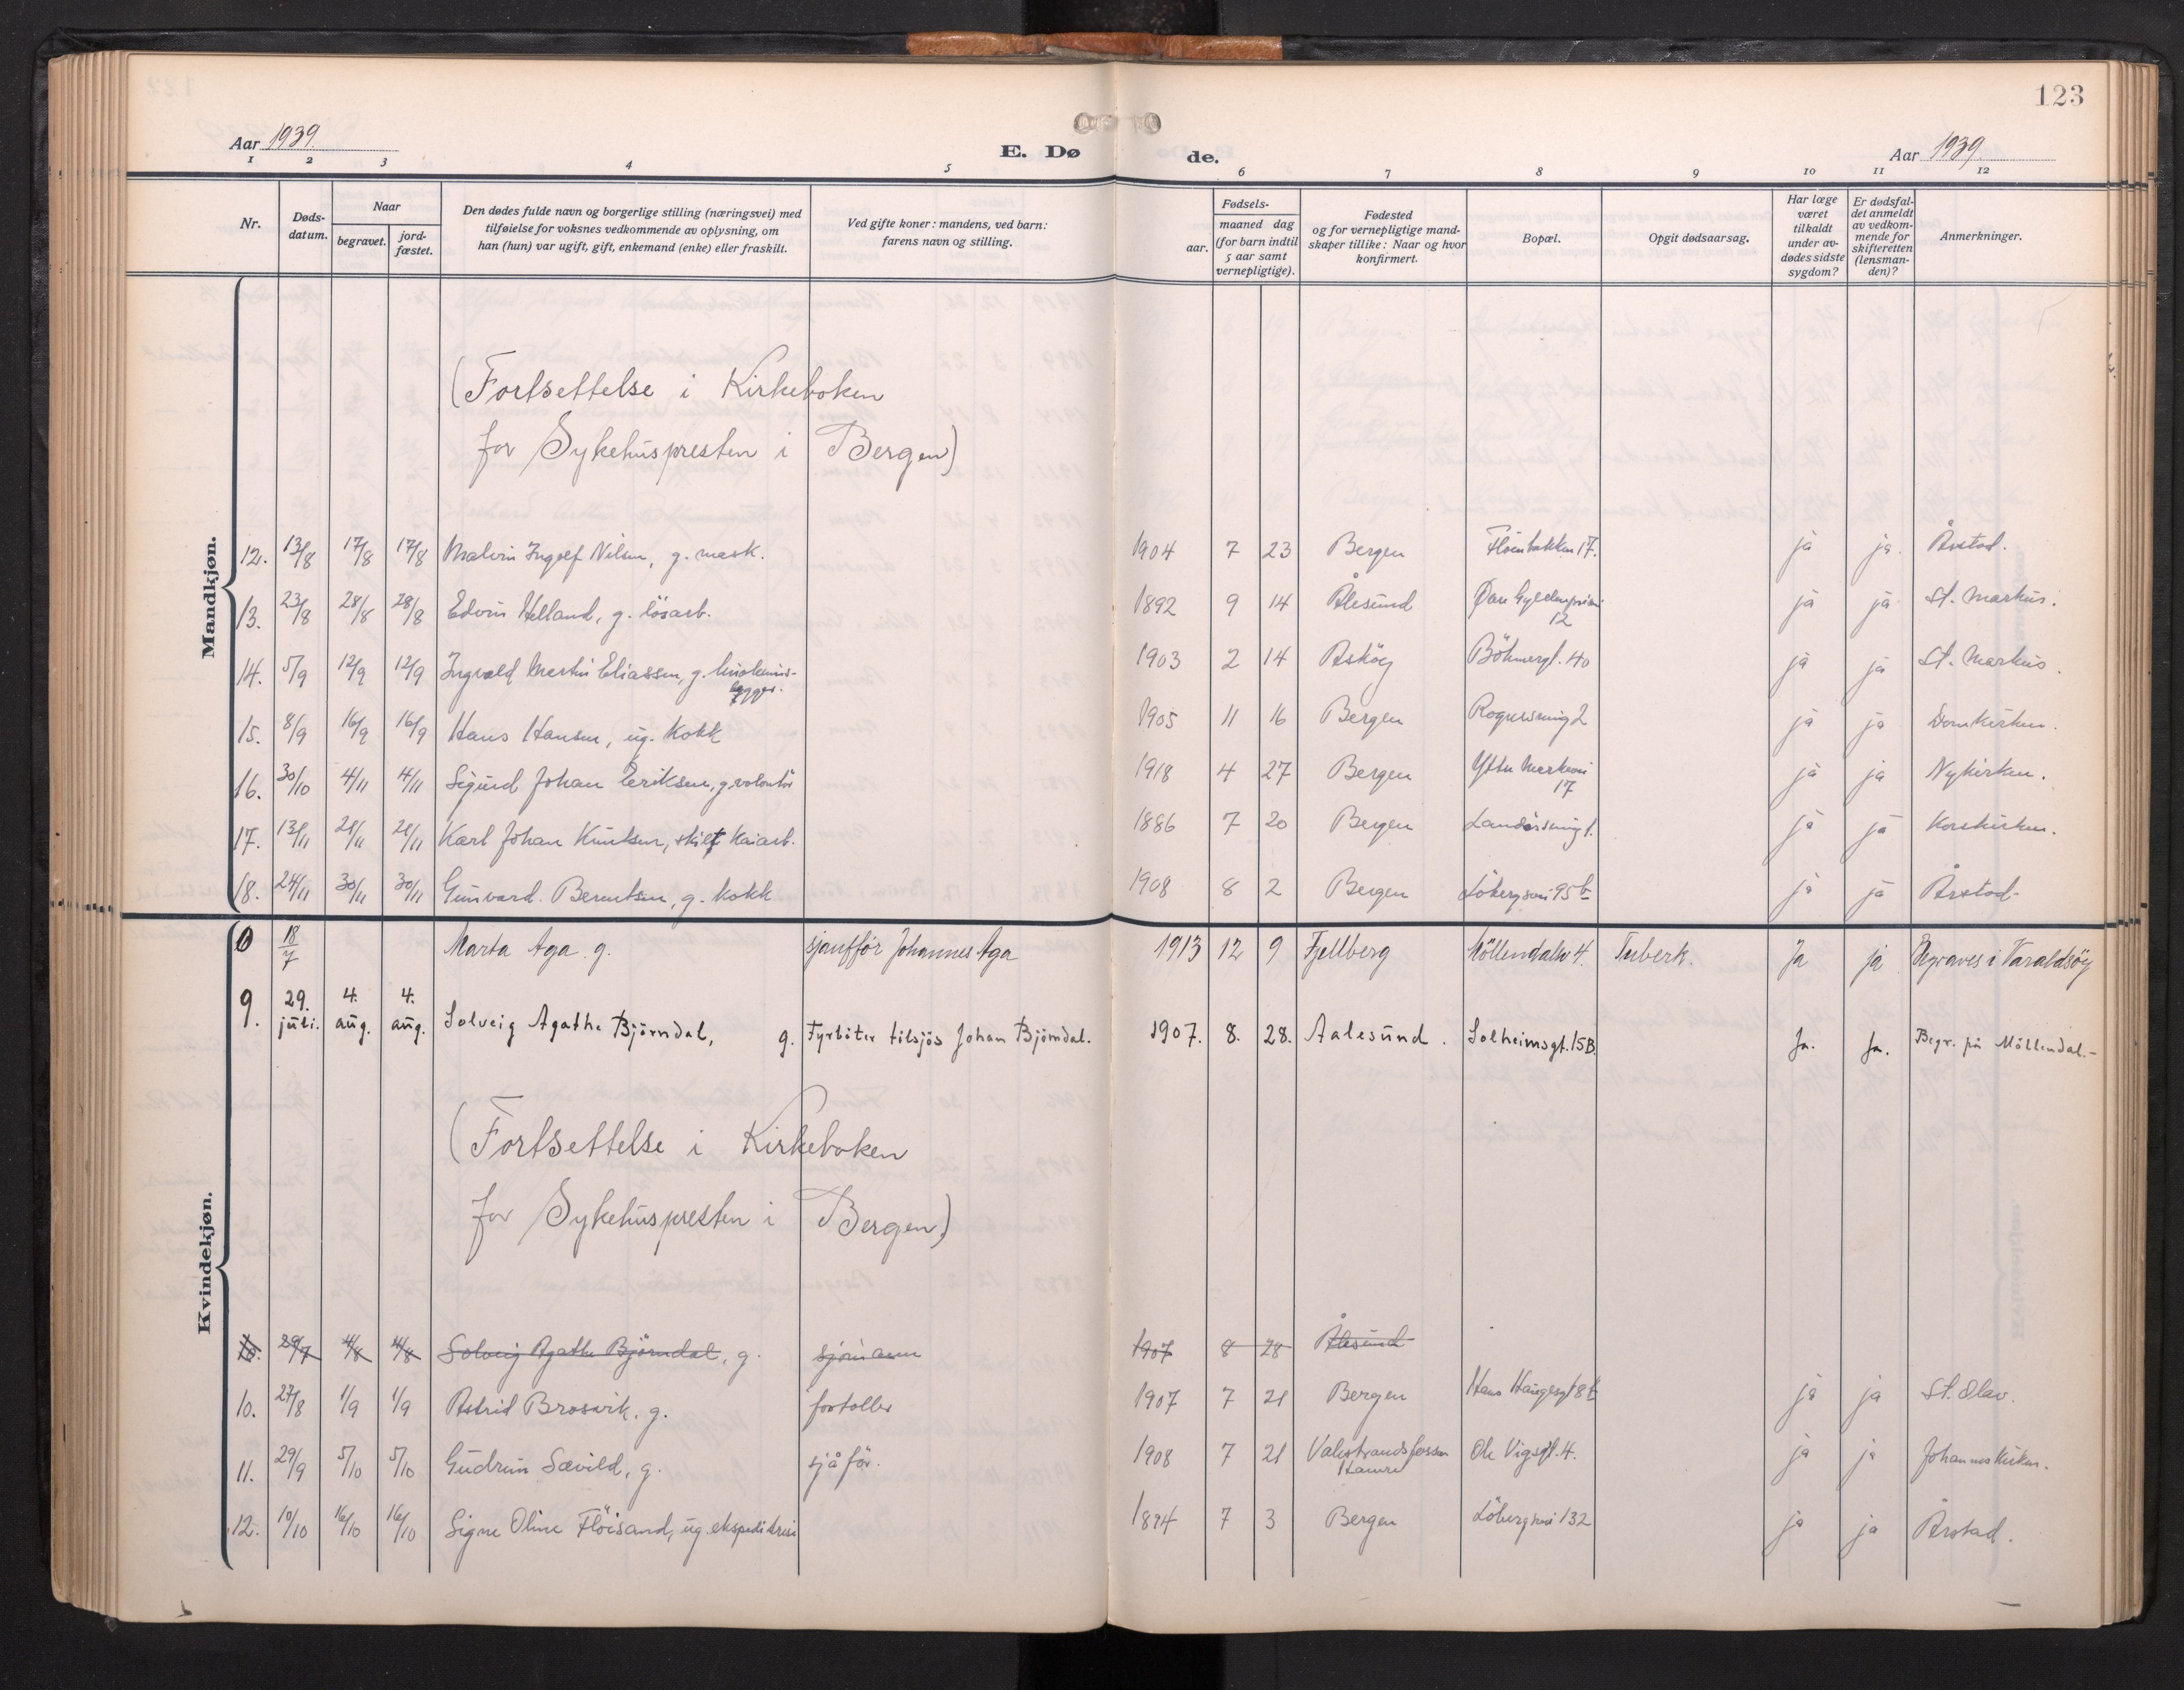 123
Aar 1939.
E. Dø
de.
Aar 1939
1 2 3 4 5 6 7 8 9 10 11 12
Nr.
Døds-
datum.
Naar
begravet.
jord-
fæstet.
Den dødes fulde navn og borgerlige stilling (næringsvei) med
tilføielse for voksnes vedkommende av oplysning, om
han (hun) var ugift, gift, enkemand (enke) eller fraskilt.
Ved gifte koner: mandens, ved barn:
farens navn og stilling.
Fødsels-
aar.
maaned dag
(for barn indtil
5 aar samt
vernepligtige).
Fødested
og for vernepligtige mand-
skaper tillike: Naar og hvor
konfirmert.
Bopæl.
Opgit dødsaarsag.
Har læge
været
tilkaldt
under av-
dødes sidste
sygdom?
Er dødsfal-
det anmeldt
av vedkom-
mende for
skifteretten
(lensman-
den)?
Anmerkninger.
Mandkjøn.
(Fortsettelse i Kirkeboken
for Sykehuspresten i Bergen)
12. 13/8 17/8 17/8 Malvin Ingolf Nilsen, g. mask. 1904 7 23 Bergen Fløenbakken 17. ja ja Årstad.
13. 23/8 28/8 28/8 Edvin Helland, g. lösarb. 1892 9 14 Ålesund Øvre
12 ja ja St. Markus.
14. 5/9 12/9 12/9 Ingvald Martin Eliassen, g. linoleums-
legger. 1903 2 14 Askøy Böhmergt. 40 ja ja St. Markus.
15. 8/9 16/9 16/9 Hans Hansen, ug. kokk 1905 11 16 Bergen 2 ja ja Domkirken.
16. 30/10 4/11 4/11 Sigurd Johan Eriksen, g. volontör 1918 4 27 Bergen Ytre Markvei
17 ja ja Nykirken.
17. 13/11 21/11 21/11 Karl Johan Knutsen, skilt kaiarb. 1886 7 20 Bergen ja ja Korskirken.
18. 24/11 30/11 30/11 Gunvard Berentsen, g. kokk 1908 8 2 Bergen Löbergsvei 95b ja ja Årstad.
Kvindekjøn.
18/7 Marta Aga g. sjauffør Johannes Aga 1913 12 9 Fjellberg Möllendalsv 4. Tuberk. Ja ja Begraves i Varaldsöy
9. 29. juli. 4. aug. 4. aug. Solveig Agathe Björndal, g. Fyrböter tilsjös Johan Björndal. 1907. 8. 28. Aalesund. Solheimsgt. 15B. Ja. Ja. Begr. på Möllendal.-
(Fortsettelse i Kirkeboken
for Sykehuspresten i Bergen)
29/7 4/8 4/8 Solveig Agathe Björndal, g. sjömann 1907 8 28 Ålesund
10. 27/8 1/9 1/9 Astrid Brosvik, g. fortoller 1907 7 21 Bergen Hans Haugesgt 8 ja ja St. Olav.
11. 29/9 5/10 5/10 Gudrun Sævild, g. sjåför. 1908 7 21 Valestrandsfossen
Hamre Ole Vigsgt. 4. ja ja Johanneskirken.
12. 10/10 16/10 16/10 Signe Oline Flöisand, ug. ekspeditrise 1894 7 3 Bergen Löbergsvei 132 ja ja Årstad.